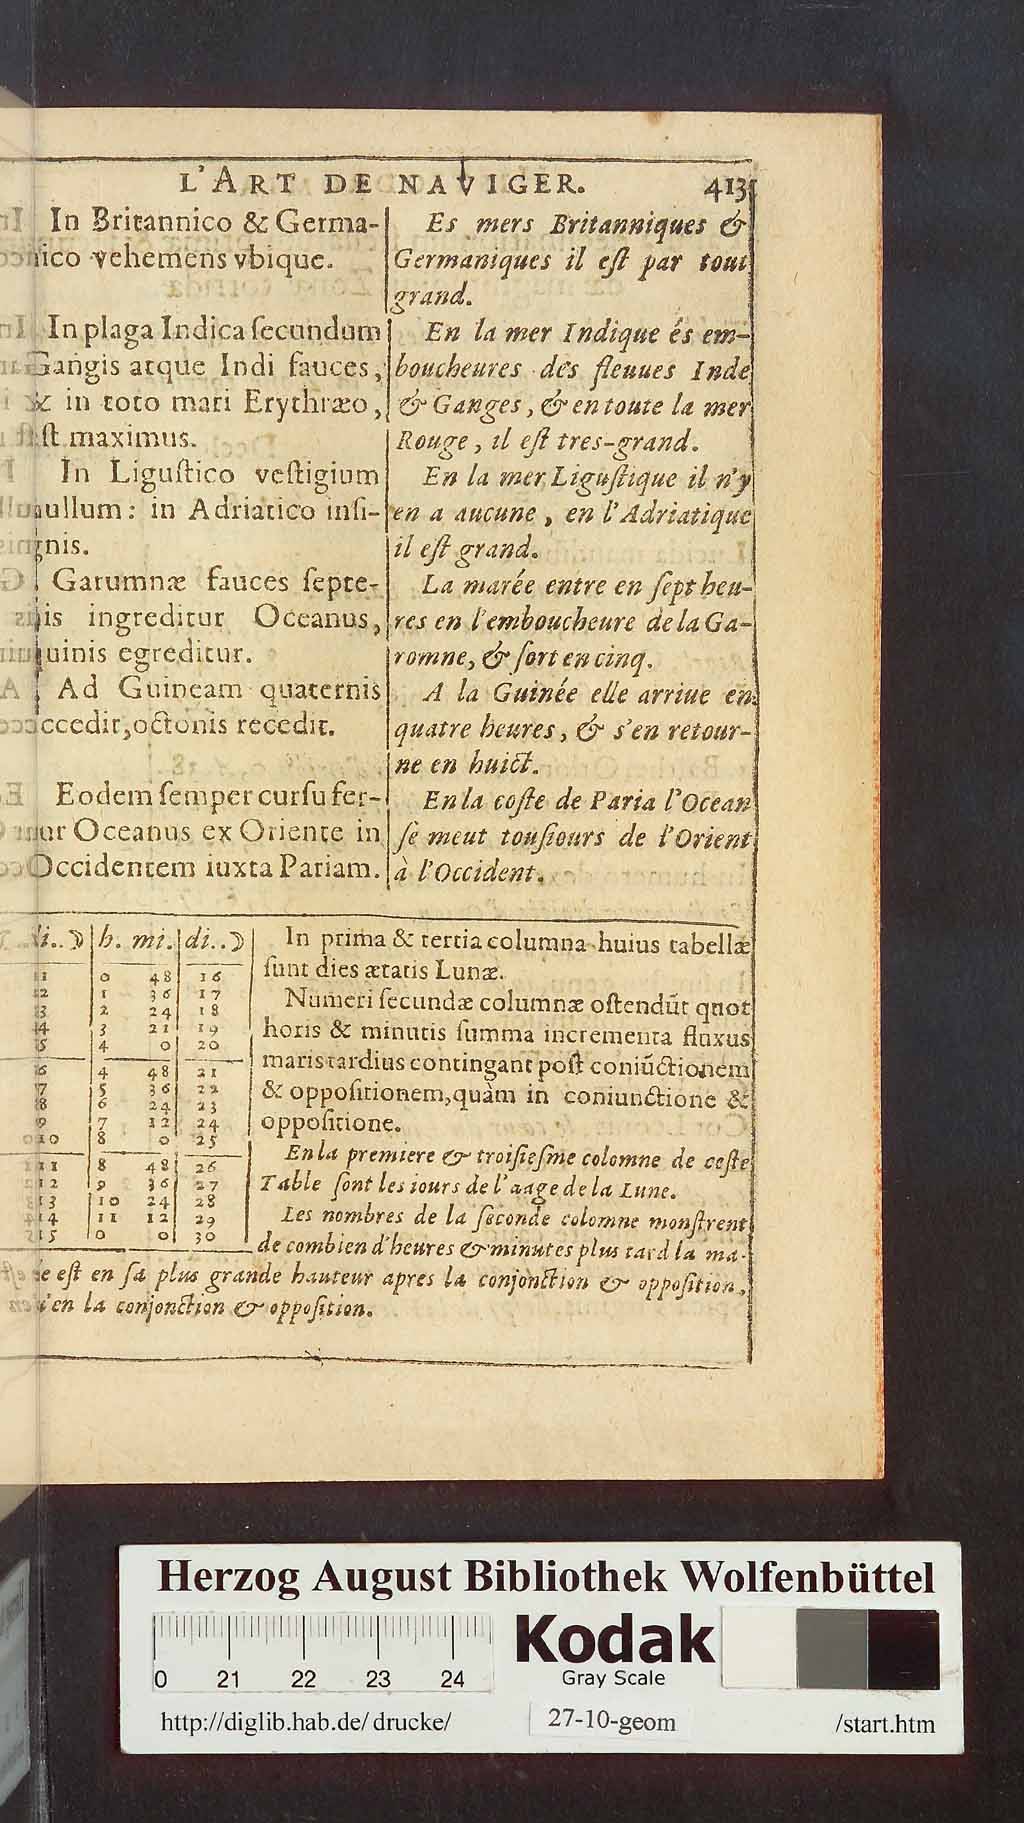 L'ART DE NAVIGER. 413
In Britannico & Germa-
nico vehemens vbique.
In plaga Indica ſecundum
Gangis atque Indi fauces,
& in toto mari Erythræo,
eſt maximus.
In Liguſtico veſtigium
nullum: in Adriatico inſi-
gnis.
Garumnæ fauces ſepte-
nis ingreditur Oceanus,
quinis egreditur.
Ad Guineam quaternis
accedit, octonis recedit.
Eodem ſemper curſu fer-
tur Oceanus ex Oriente in
Occidentem iuxta Pariam.
Es mers Britanniques &
Germaniques il eſt par tout
grand.
En la mer Indique és em-
boucheures des fleuues Inde
& Ganges, & en toute la mer
Rouge, il eſt tres-grand.
En la mer Liguſtique il n'y
en a aucune, en l'Adriatique
il eſt grand.
La marée entre en ſept heu-
res en l'emboucheure de la Ga-
romne, & ſort en cinq.
A la Guinée elle arriue en
quatre heures, & s'en retour-
ne en huict.
En la coſte de Paria l'Ocean
ſe meut touſiours de l'Orient
à l'Occident.
di..☽ h. mi. di..☽
1 0 48 16
2 1 36 17
3 2 24 18
4 3 21 19
5 4 0 20
6 4 48 21
7 5 36 22
8 6 24 23
9 7 12 24
10 8 0 25
11 8 48 26
12 9 36 27
13 10 24 28
14 11 12 29
15 0 0 30
In prima & tertia columna huius tabellæ
ſunt dies ætatis Lunæ.
Numeri ſecundæ columnæ oſtendũt quot
horis & minutis ſumma incrementa fluxus
maris tardius contingant poſt coniũctionem
& oppoſitionem, quàm in coniunctione &
oppoſitione.
En la premiere & troiſieſme colomne de ceſte
Table ſont les iours de l'aage de la Lune.
Les nombres de la ſeconde colomne monſtrent
de combien d'heures & minutes plus tard la ma-
rée eſt en ſa plus grande hauteur apres la conjonction & oppoſition,
qu'en la conjonction & oppoſition.
Herzog August Bibliothek Wolfenbüttel
0 21 22 23 24
Kodak
Gray Scale
http://diglib.hab.de/drucke/ 27-10-geom /start.htm